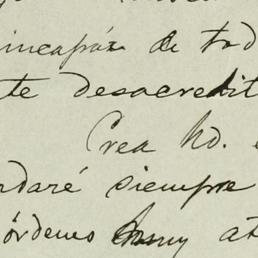 incapáz de tod
te desacredit
Crea Ud. 
rdaré siempre
órdenes muy at